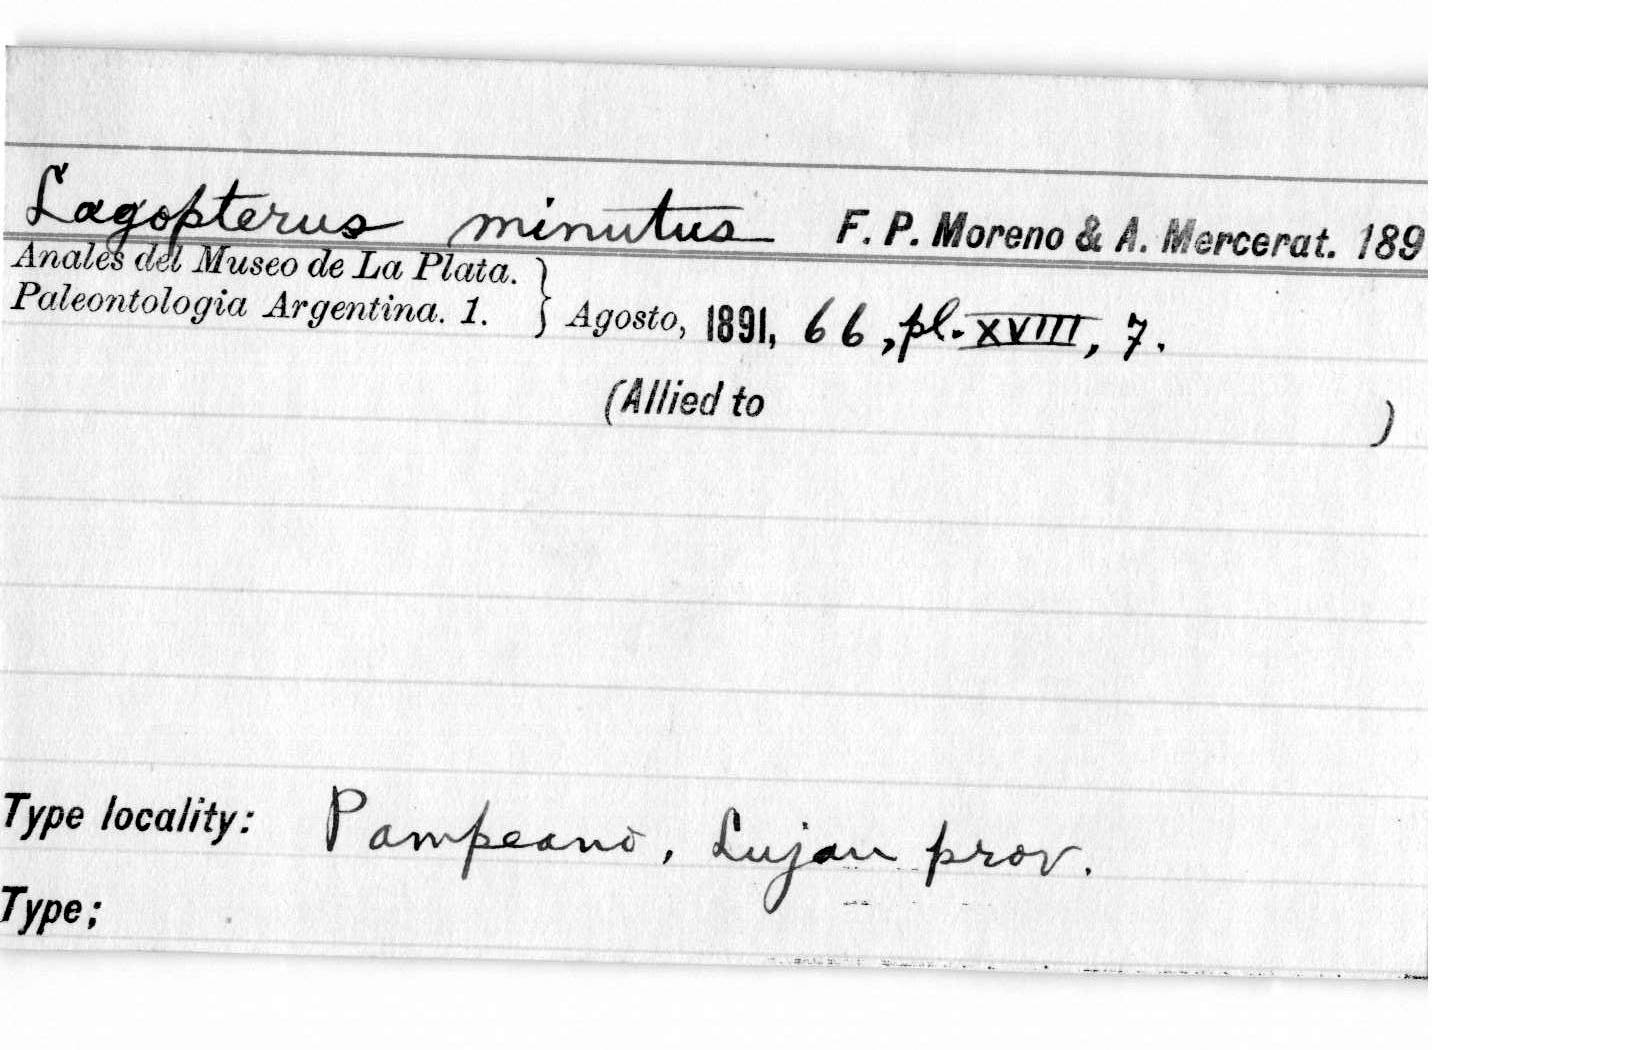 Lagopterus minutus F. P. Moreno & A. Mercerat. 189
Anales del Museo de La Plata.
Paleontologia Argentina. 1. } Agosto, 1891, 66, pl. XVIII, 7.
(Allied to )
Type locality: Pampeano, Lujan prov.
Type;